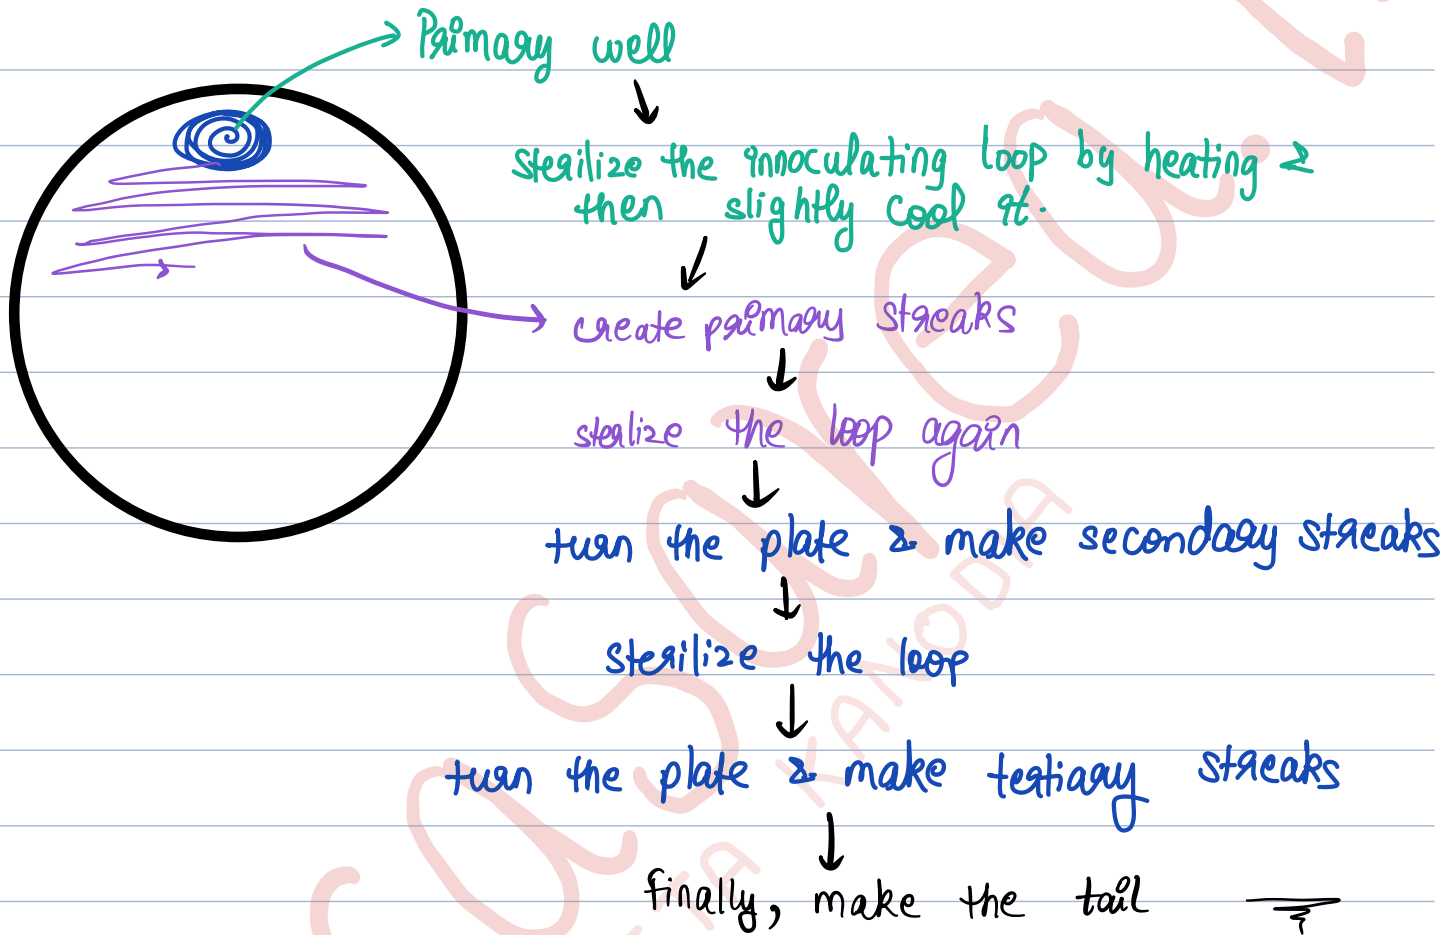 Primary well
sterilize the innoculating loop by heating &
then slightly cool it.
create primary streaks
sterlize the loop again
turn the plate & make secondary streaks
sterilize the loop
turn the plate & make tertiary streaks
finally, make the tail
KANODIA